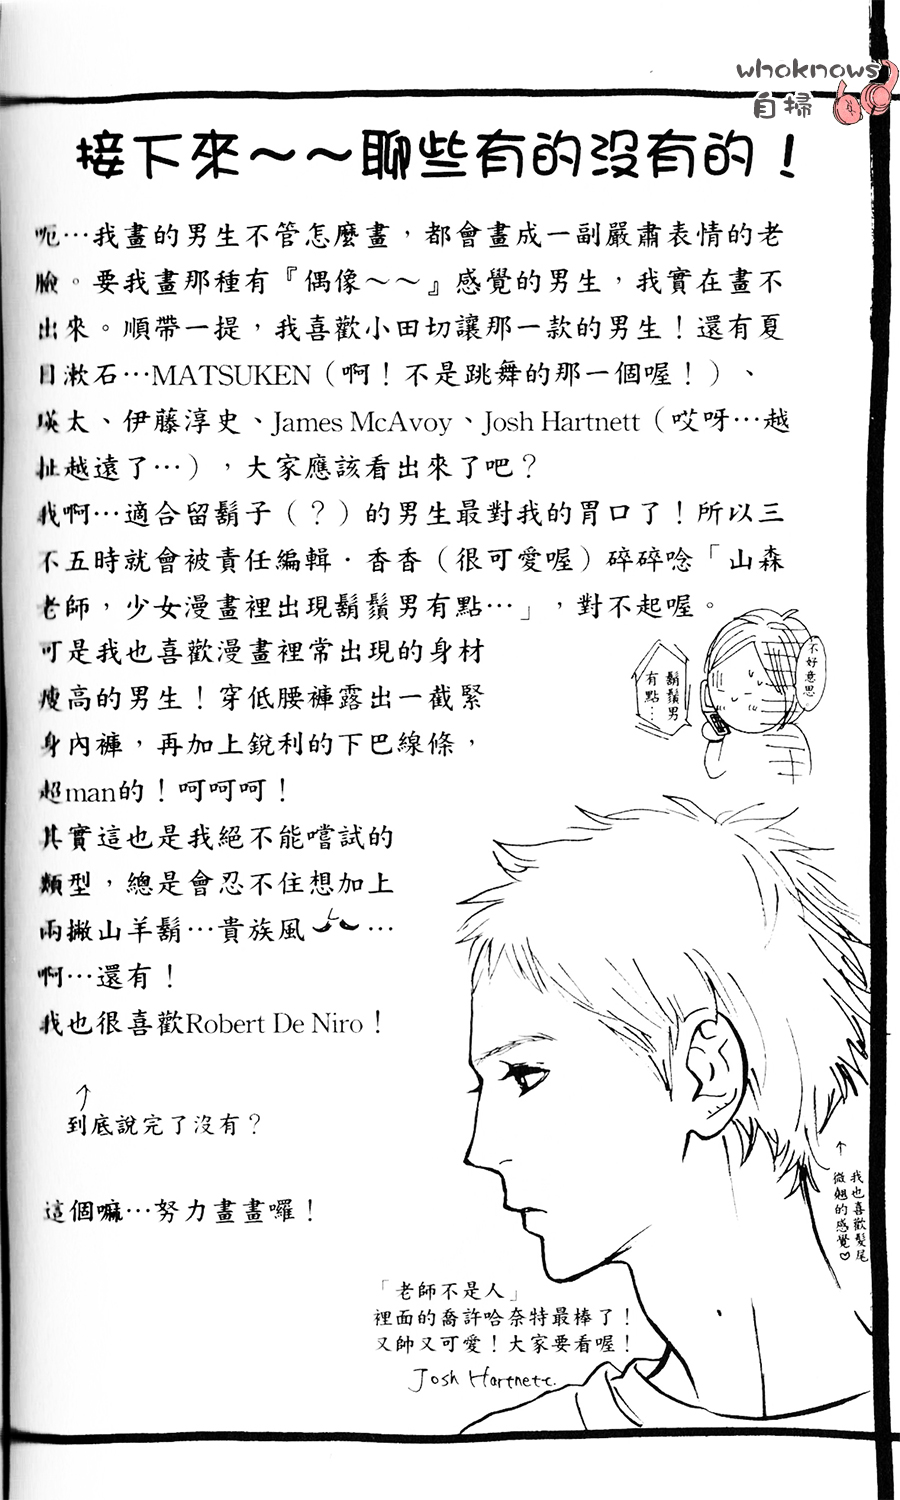 whoknows
自掃
接下來～～聊些有的沒有的！
呃…我畫的男生不管怎麼畫，都會畫成一副嚴肅表情的老
臉。要我畫那種有『偶像～～』感覺的男生，我實在畫不
出來。順帶一提，我喜歡小田切讓那一款的男生！還有夏
目漱石…MATSUKEN（啊！不是跳舞的那一個喔！）、
瑛太、伊藤淳史、James McAvoy、Josh Hartnett（哎呀…越
扯越遠了…），大家應該看出來了吧？
我啊…適合留鬍子（？）的男生最對我的胃口了！所以三
不五時就會被責任編輯．香香（很可愛喔）碎碎唸「山森
老師，少女漫畫裡出現鬍鬚男有點…」，對不起喔。
可是我也喜歡漫畫裡常出現的身材
瘦高的男生！穿低腰褲露出一截緊
身內褲，再加上銳利的下巴線條，
超man的！呵呵呵！
其實這也是我絕不能嚐試的
類型，總是會忍不住想加上
兩撇山羊鬍…貴族風…
啊…還有！
我也很喜歡Robert De Niro！
↑
到底說完了沒有？
這個嘛…努力畫畫囉！
不好意思。
鬍鬚男
有點…
↑
我也喜歡髮尾
微翹的感覺♡
「老師不是人」
裡面的喬許哈奈特最棒了！
又帥又可愛！大家要看喔！
Josh Hartnett.